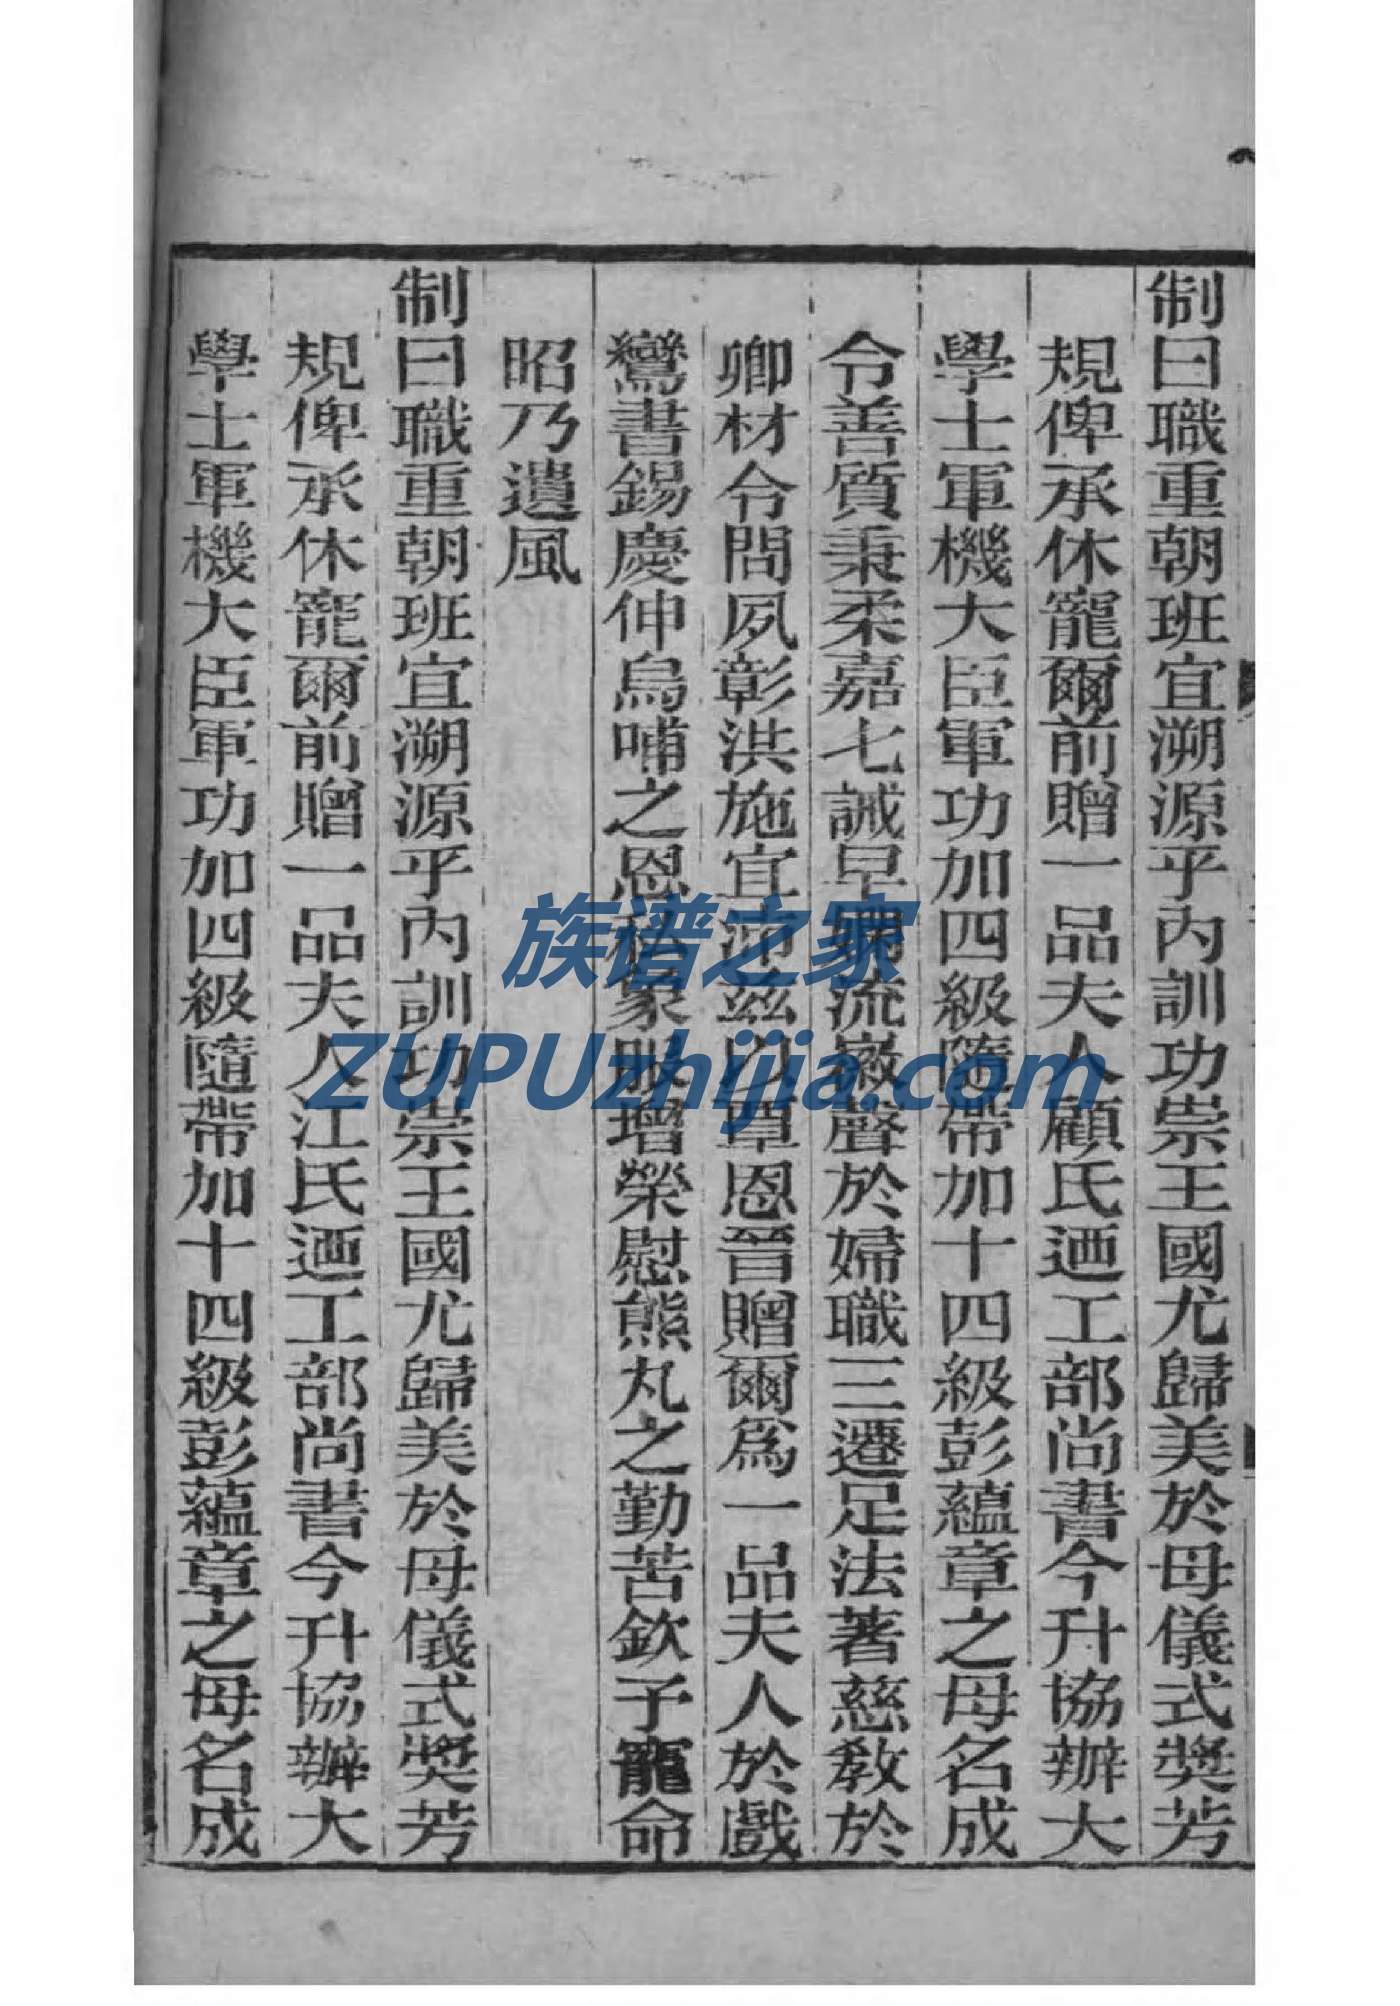 制曰職重朝班宜溯源乎內訓功崇王國尤歸美於母儀式獎芳
規俾承休寵爾前贈一品夫人顧氏迺工部尚書今升協辦大
學士軍機大臣軍功加四級隨帶加十四級彭蘊章之母名成
令善質秉柔嘉七誡早嫻流徽聲於婦職三遷足法著慈教於
卿材令問夙彰洪施宜沛茲以覃恩晉贈爾爲一品夫人於戲
鸞書錫慶伸烏哺之恩象服增榮慰熊丸之勤苦欽予寵命
昭乃遺風
制曰職重朝班宜溯源乎內訓功崇王國尤歸美於母儀式獎芳
規俾承休寵爾前贈一品夫人江氏迺工部尚書今升協辦大
學士軍機大臣軍功加四級隨帶加十四級彭蘊章之母名成
族谱之家
ZUPUzhijia.com